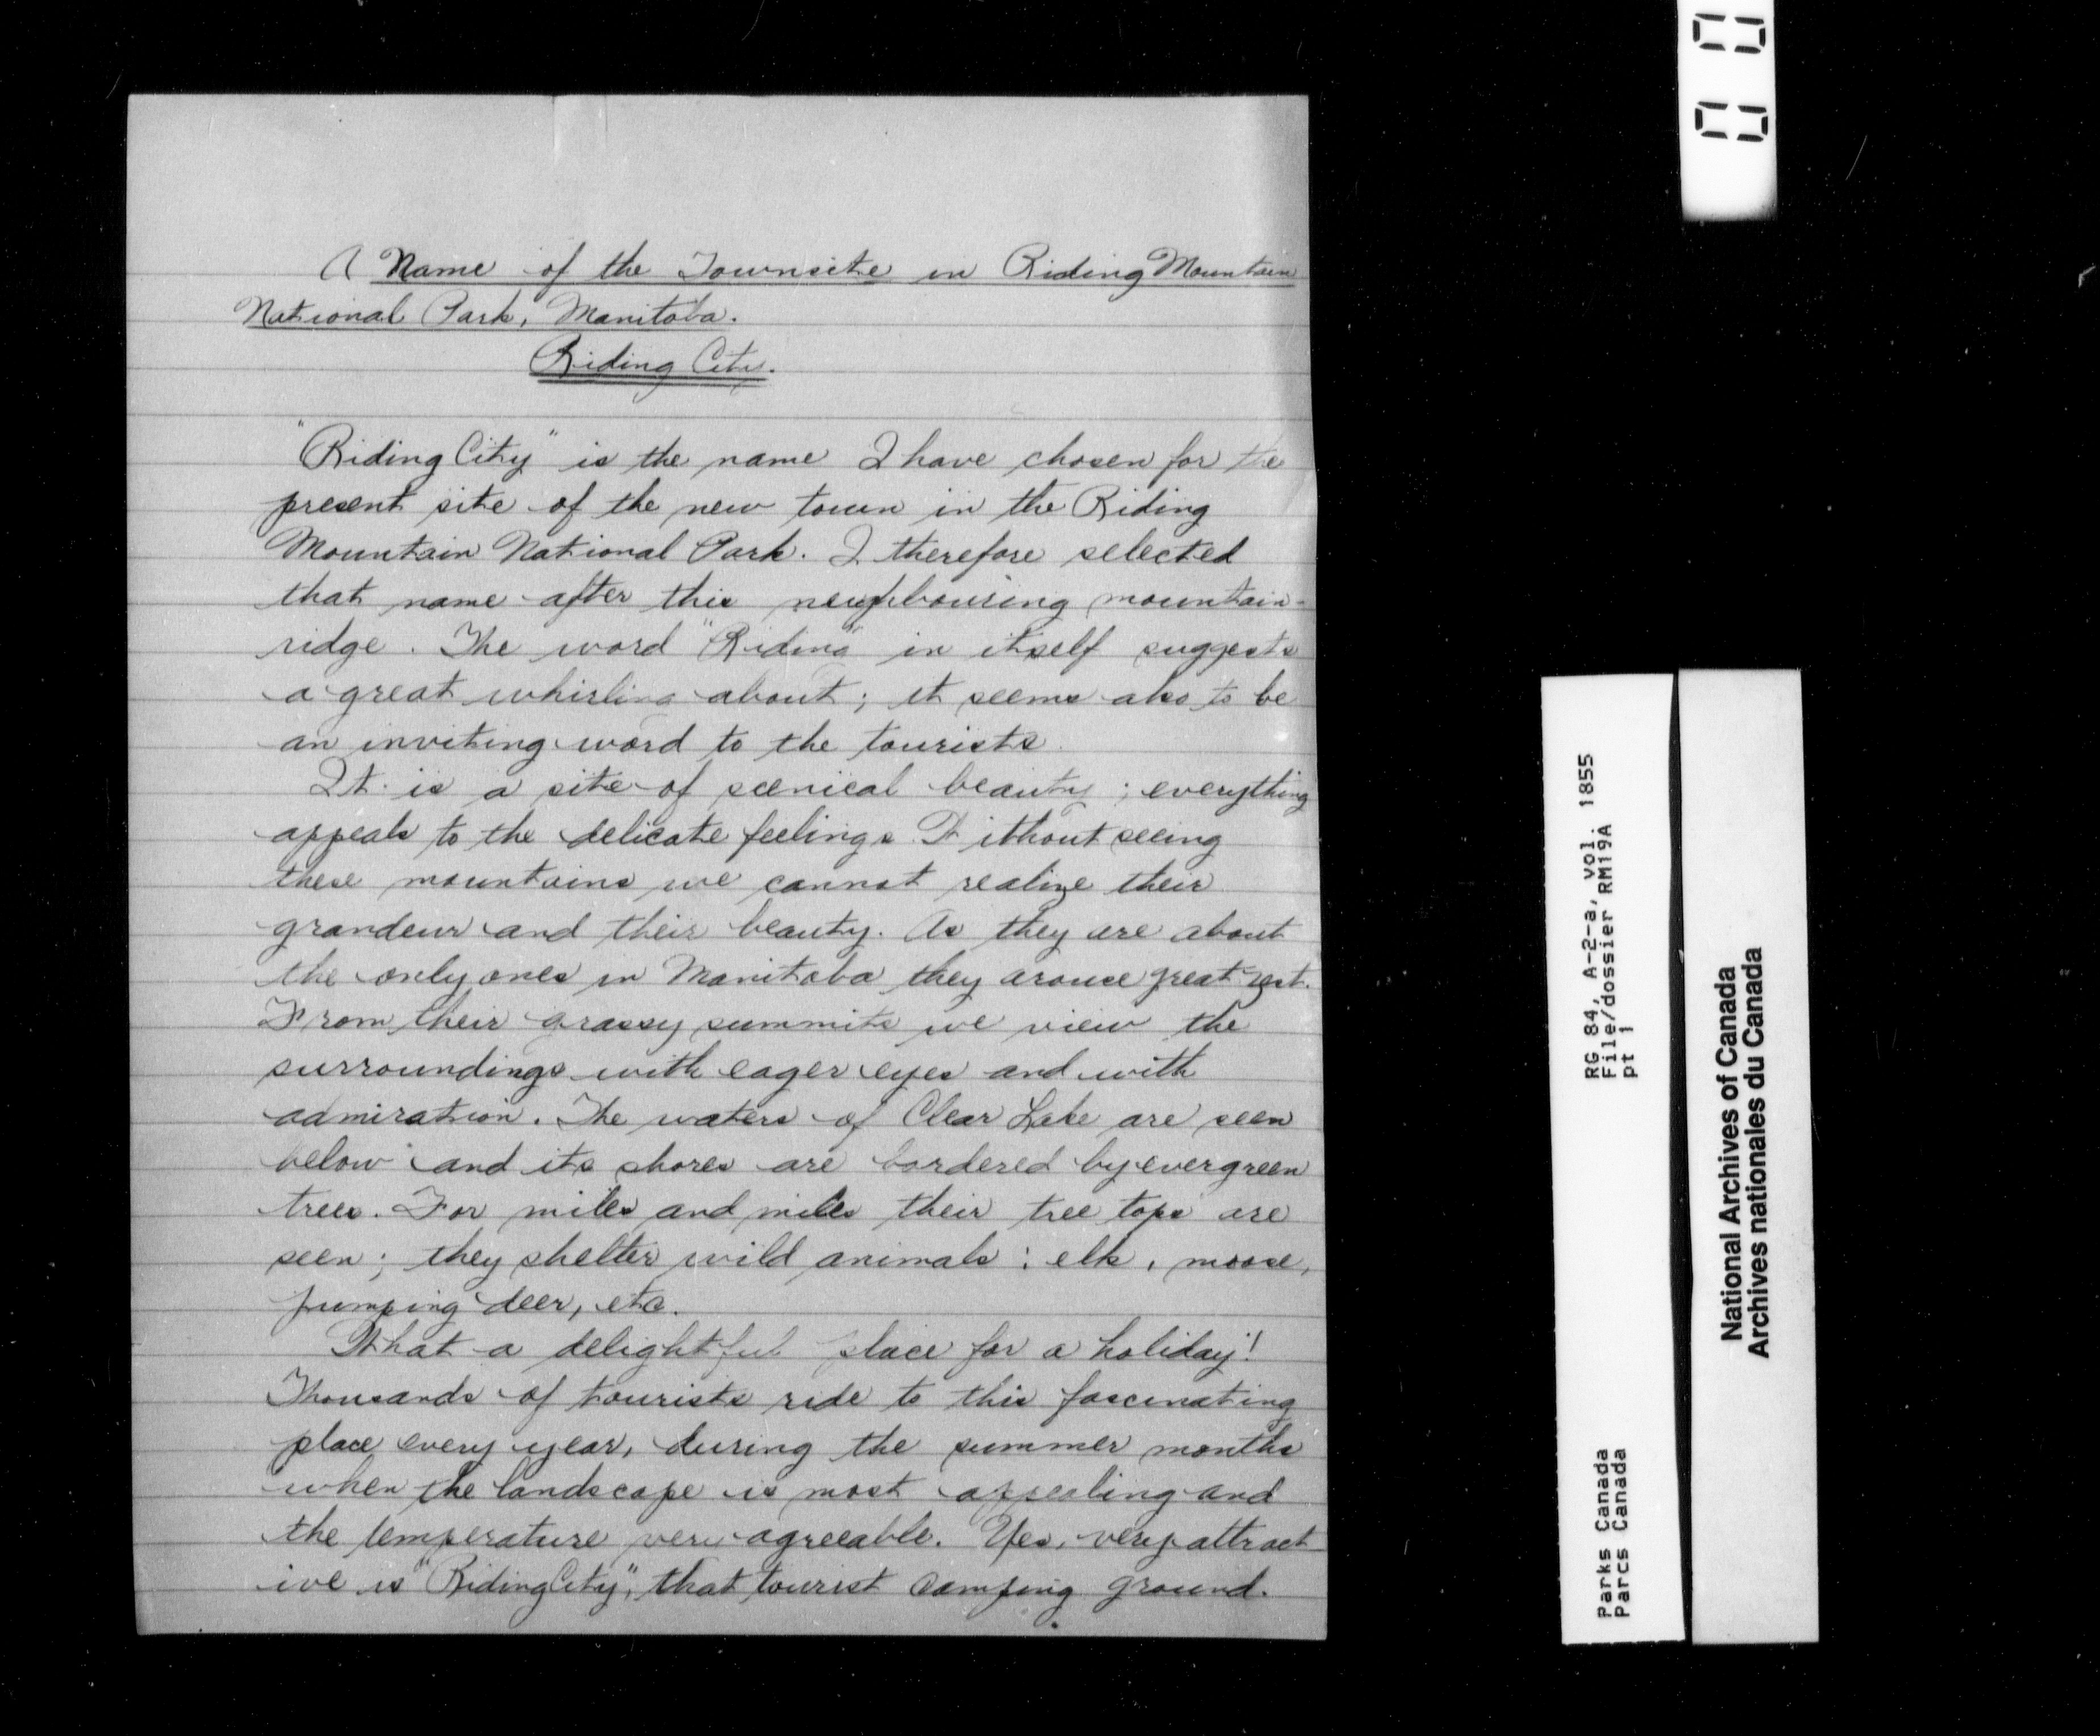 A Name of the Townsite in Riding Mountain
National Park, Manitoba.
Riding City.
"Riding City" is the name I have chosen for the
present site of the new town in the Riding
Mountain National Park. I therefore selected
that name after this neighbouring mountain-
ridge. The word "Riding" in itself suggests
a great whirling about; it seems also to be
an inviting word to the tourists.
It is a site of scenical beauty; everything
appeals to the delicate feelings. Without seeing
these mountains we cannot realize their
grandeur and their beauty. As they are about
the only ones in Manitoba they arouse great zest.
From their grassy summits we view the
surroundings with eager eyes and with
admiration. The waters of Clear Lake are seen
below and its shores are bordered by evergreen
trees. For miles and miles their tree tops are
seen; they shelter wild animals: elk, moose,
jumping deer, etc.
What a delightful place for a holiday!
Thousands of tourists ride to this fascinating
place every year, during the summer months
when the landscape is most appealing and
the temperature very agreeable. Yes, very attract
ive is "Riding City", that tourist camping ground.
RG 84, A-2-a, vol. 1855
File/dossier RM19A
pt 1
Parks Canada
Parcs Canada
National Archives of Canada
Archives nationales du Canada